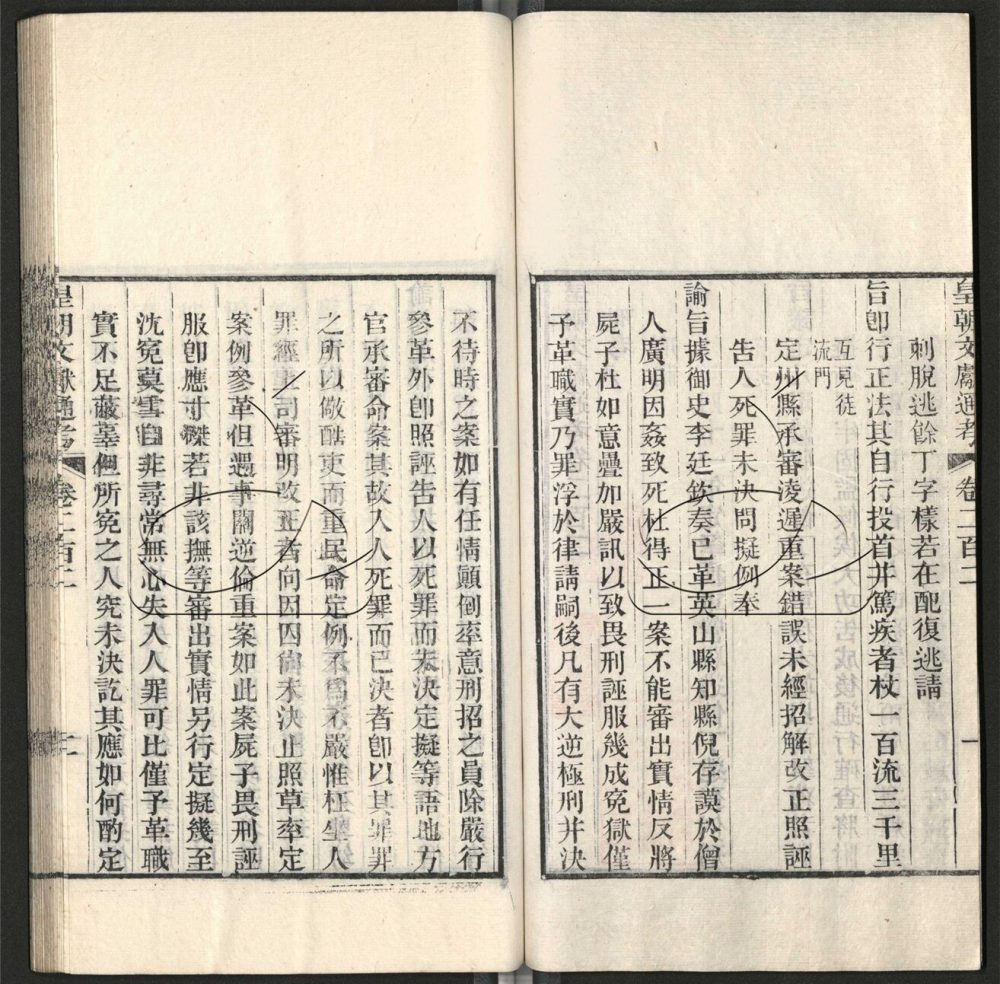 皇朝文獻通考 卷二百二 一
刺脫逃餘丁字樣若在配復逃請
旨卽行正法其自行投首并篤疾者杖一百流三千里
互見徒
流門
定州縣承審淩遲重案錯誤未經招解改正照誣
吿人死罪未決問擬例奉
諭旨據御史李廷欽奏已革英山縣知縣倪存謨於僧
人廣明因姦致死杜得正一案不能審出實情反將
屍子杜如意疊加嚴訊以致畏刑誣服幾成冤獄僅
予革職實乃罪浮於律請嗣後凡有大逆極刑并決
不待時之案如有任情顚倒率意刑招之員除嚴行
參革外卽照誣告人以死罪而未決定擬等語地方
官承審命案其故入人死罪而已決者卽以其罪罪
之所以儆酷吏而重民命定例不爲不嚴惟枉坐人
罪經上司審明改正者向因囚尙未決止照草率定
案例參革但遇事關逆倫重案如此案屍子畏刑誣
服卽應寸磔若非該撫等審出實情另行定擬幾至
沈冤莫雪自非尋常無心失入人罪可比僅予革職
實不足蔽辜但所冤之人究未決訖其應如何酌定
皇朝文獻通考 卷二百二